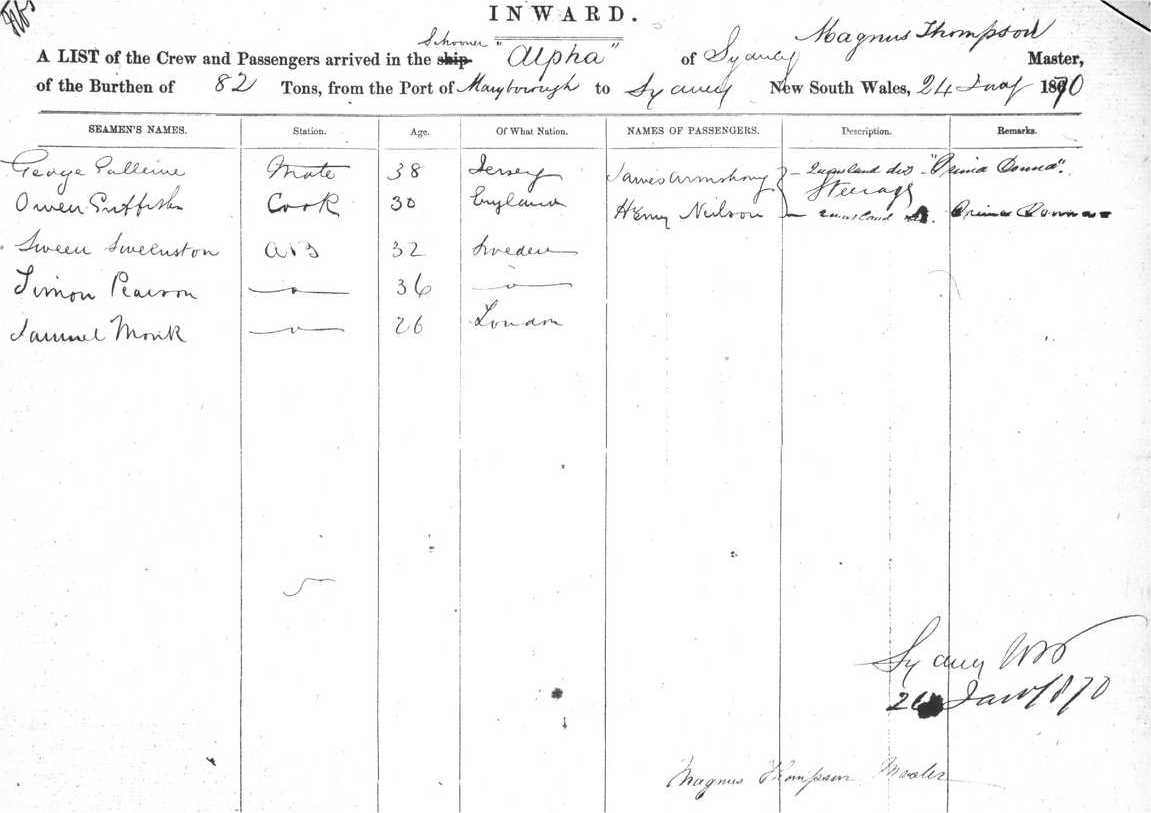 INWARD.
Schooner Magnus Thompson
A LIST of the Crew and Passengers arrived in the ship "Alpha" of Sydney Master,
of the Burthen of 82 Tons, from the Port of Maryborough to Sydney New South Wales, 24 Jany 1870
SEAMEN'S NAMES. Station. Age. Of What Nation. NAMES OF PASSENGERS. Description. Remarks.
George Mate 38 Jersey James Armstrong "Prima Donna".
Steerage
Owen Griffiths Cook 30 England Henry Neilson Prima Donna
Sween Sweenston AB 32 Sweden
Simon Pearson —"— 36 —"—
Samuel Monk —"— 26 London
5
Sydney NSW
Jany 1870
Magnus Thompson Master